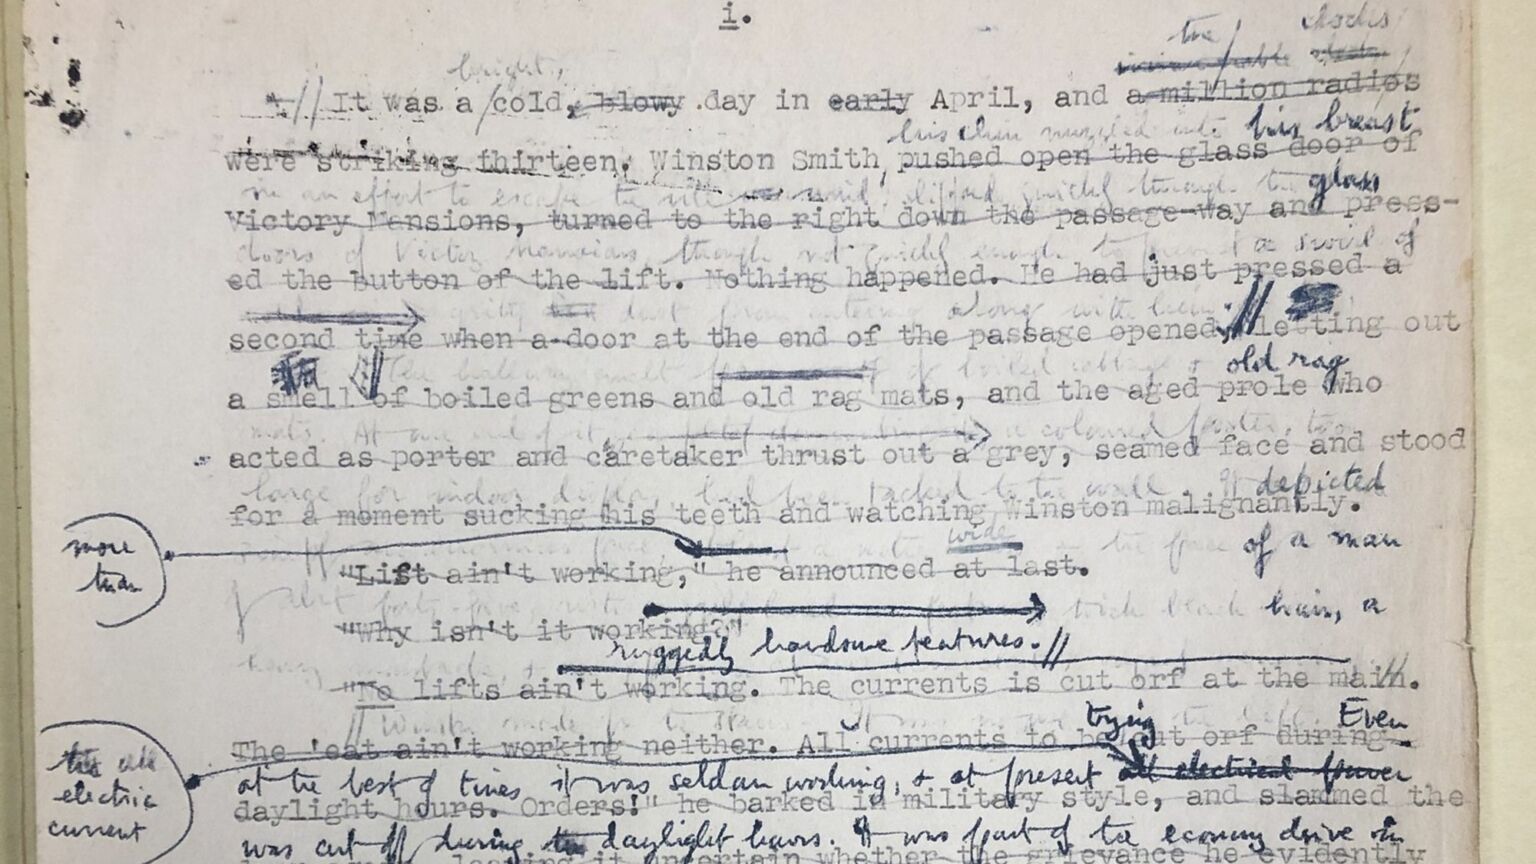 i.
the clocks
bright,
It was a cold, blowy day in early April, and a million radios
his chin nuzzled into his breast
were striking thirteen. Winston Smith pushed open the glass door of
in an effort to escape the vile wind, slipped quickly through the glass
Victory Mansions, turned to the right down the passage-way and press-
doors of Victory Mansions, though not quickly enough to prevent a swirl of
ed the button of the lift. Nothing happened. He had just pressed a
gritty dust from entering along with him.
second time when a door at the end of the passage opened, letting out
The hallway smelt of boiled cabbage & old rag
a smell of boiled greens and old rag mats, and the aged prole who
mats. At one end of it a coloured poster, too
acted as porter and caretaker thrust out a grey, seamed face and stood
large for indoor display, had been tacked to the wall. It depicted
for a moment sucking his teeth and watching Winston malignantly.
more
than
wide
the face of a man
"Lift ain't working," he announced at last.
of about forty-five, thick black hair, a
"Why isn't it working?"
ruggedly handsome features.
heavy
"No lifts ain't working. The currents is cut orf at the main.
Winston made for the stairs. It was no use trying the lift. Even
The 'eat ain't working neither. All currents to be cut orf during
at the best of times it was seldom working, & at present all electrical power
the
electric
current
daylight hours. Orders!" he barked in military style, and slammed the
was cut off during the daylight hours. It was part of the economy drive in
leaving it uncertain whether the grievance he evidently